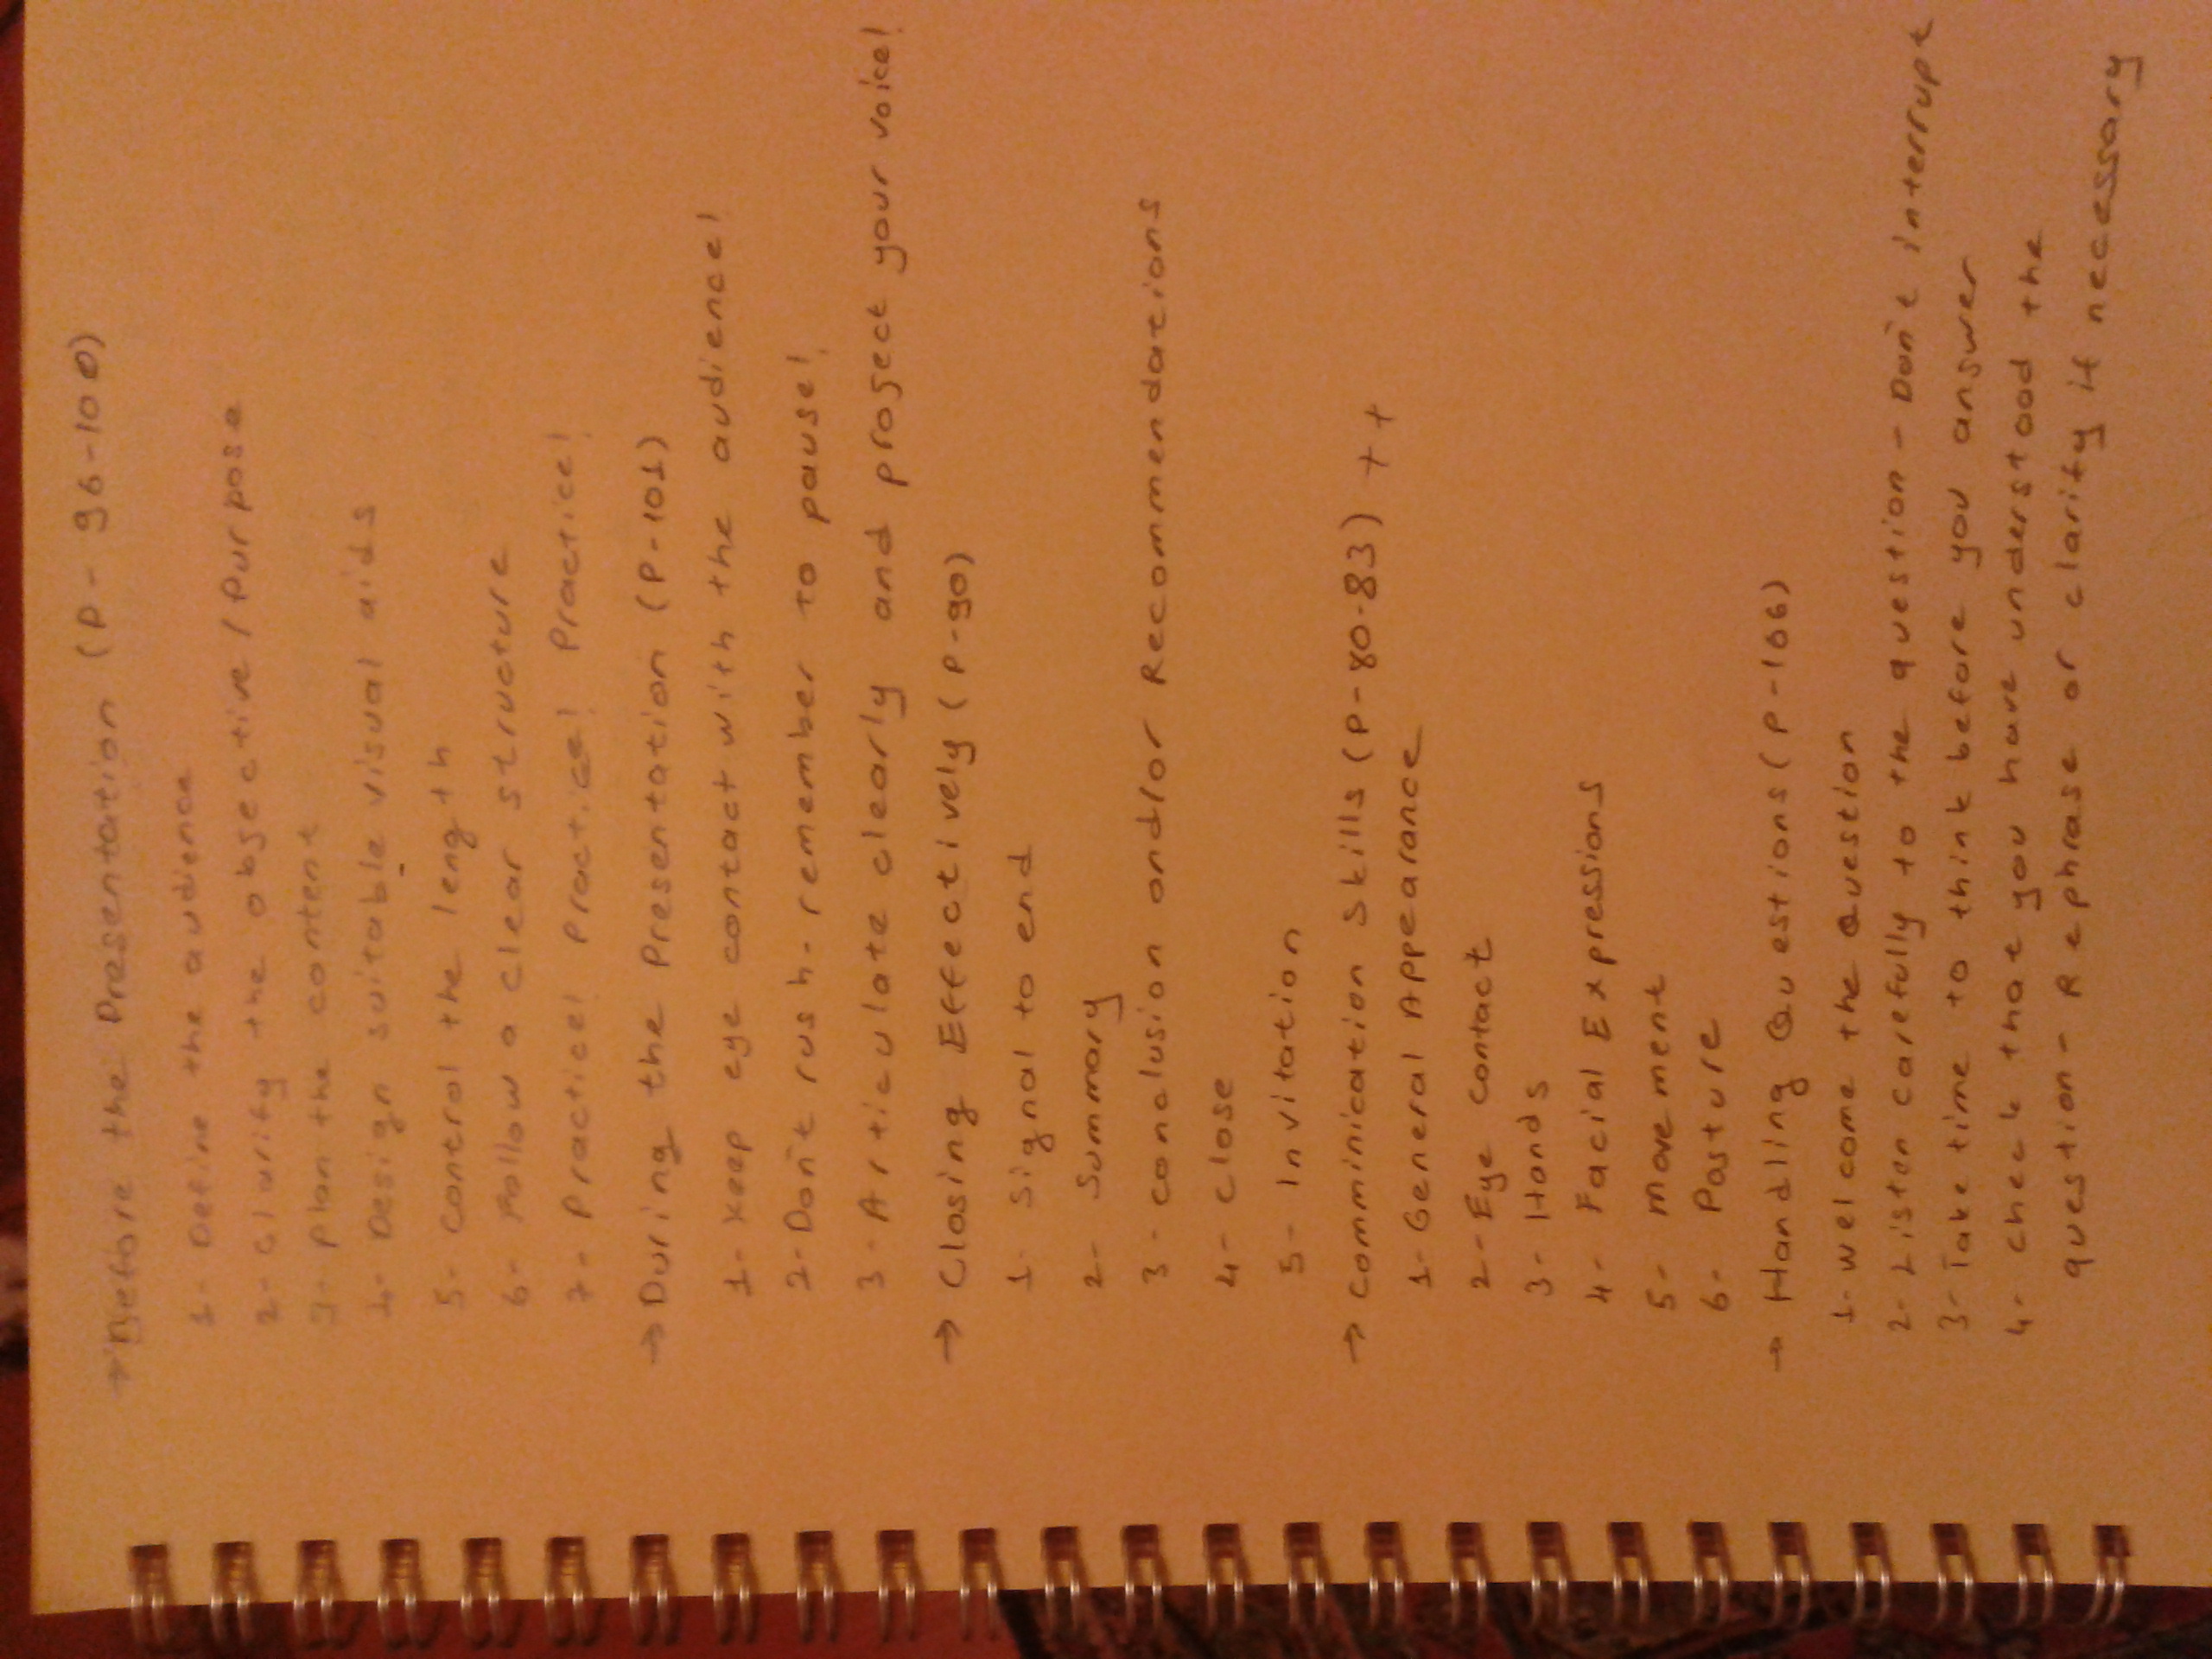 → Before the Presentation (P- 96-100)
1- Define the audience
2- Clarify the objective / Purpose
3- Plan the content
4- Design suitable visual aids
5- Control the length
6- Follow a clear structure
7- Practice! Practice! Practice!
→ During the Presentation (P-101)
1- Keep eye contact with the audience!
2- Don't rush- remember to pause!
3- Articulate clearly and project your voice!
→ Closing Effectively (P-90)
1- Signal to end
2- Summary
3- conclusion and/or Recommendations
4- close
5- Invitation
→ Comminication Skills (P-80-83) ++
1- General Appearance
2- Eye Contact
3- Hands
4- Facial Expressions
5- Movement
6- Posture
→ Handling Questions (P-106)
1- welcome the Question
2- Listen carefully to the question - Don't interrupt
3- Take time to think before you answer
4- check that you have understood the
question- Rephrase or clarify if necessary